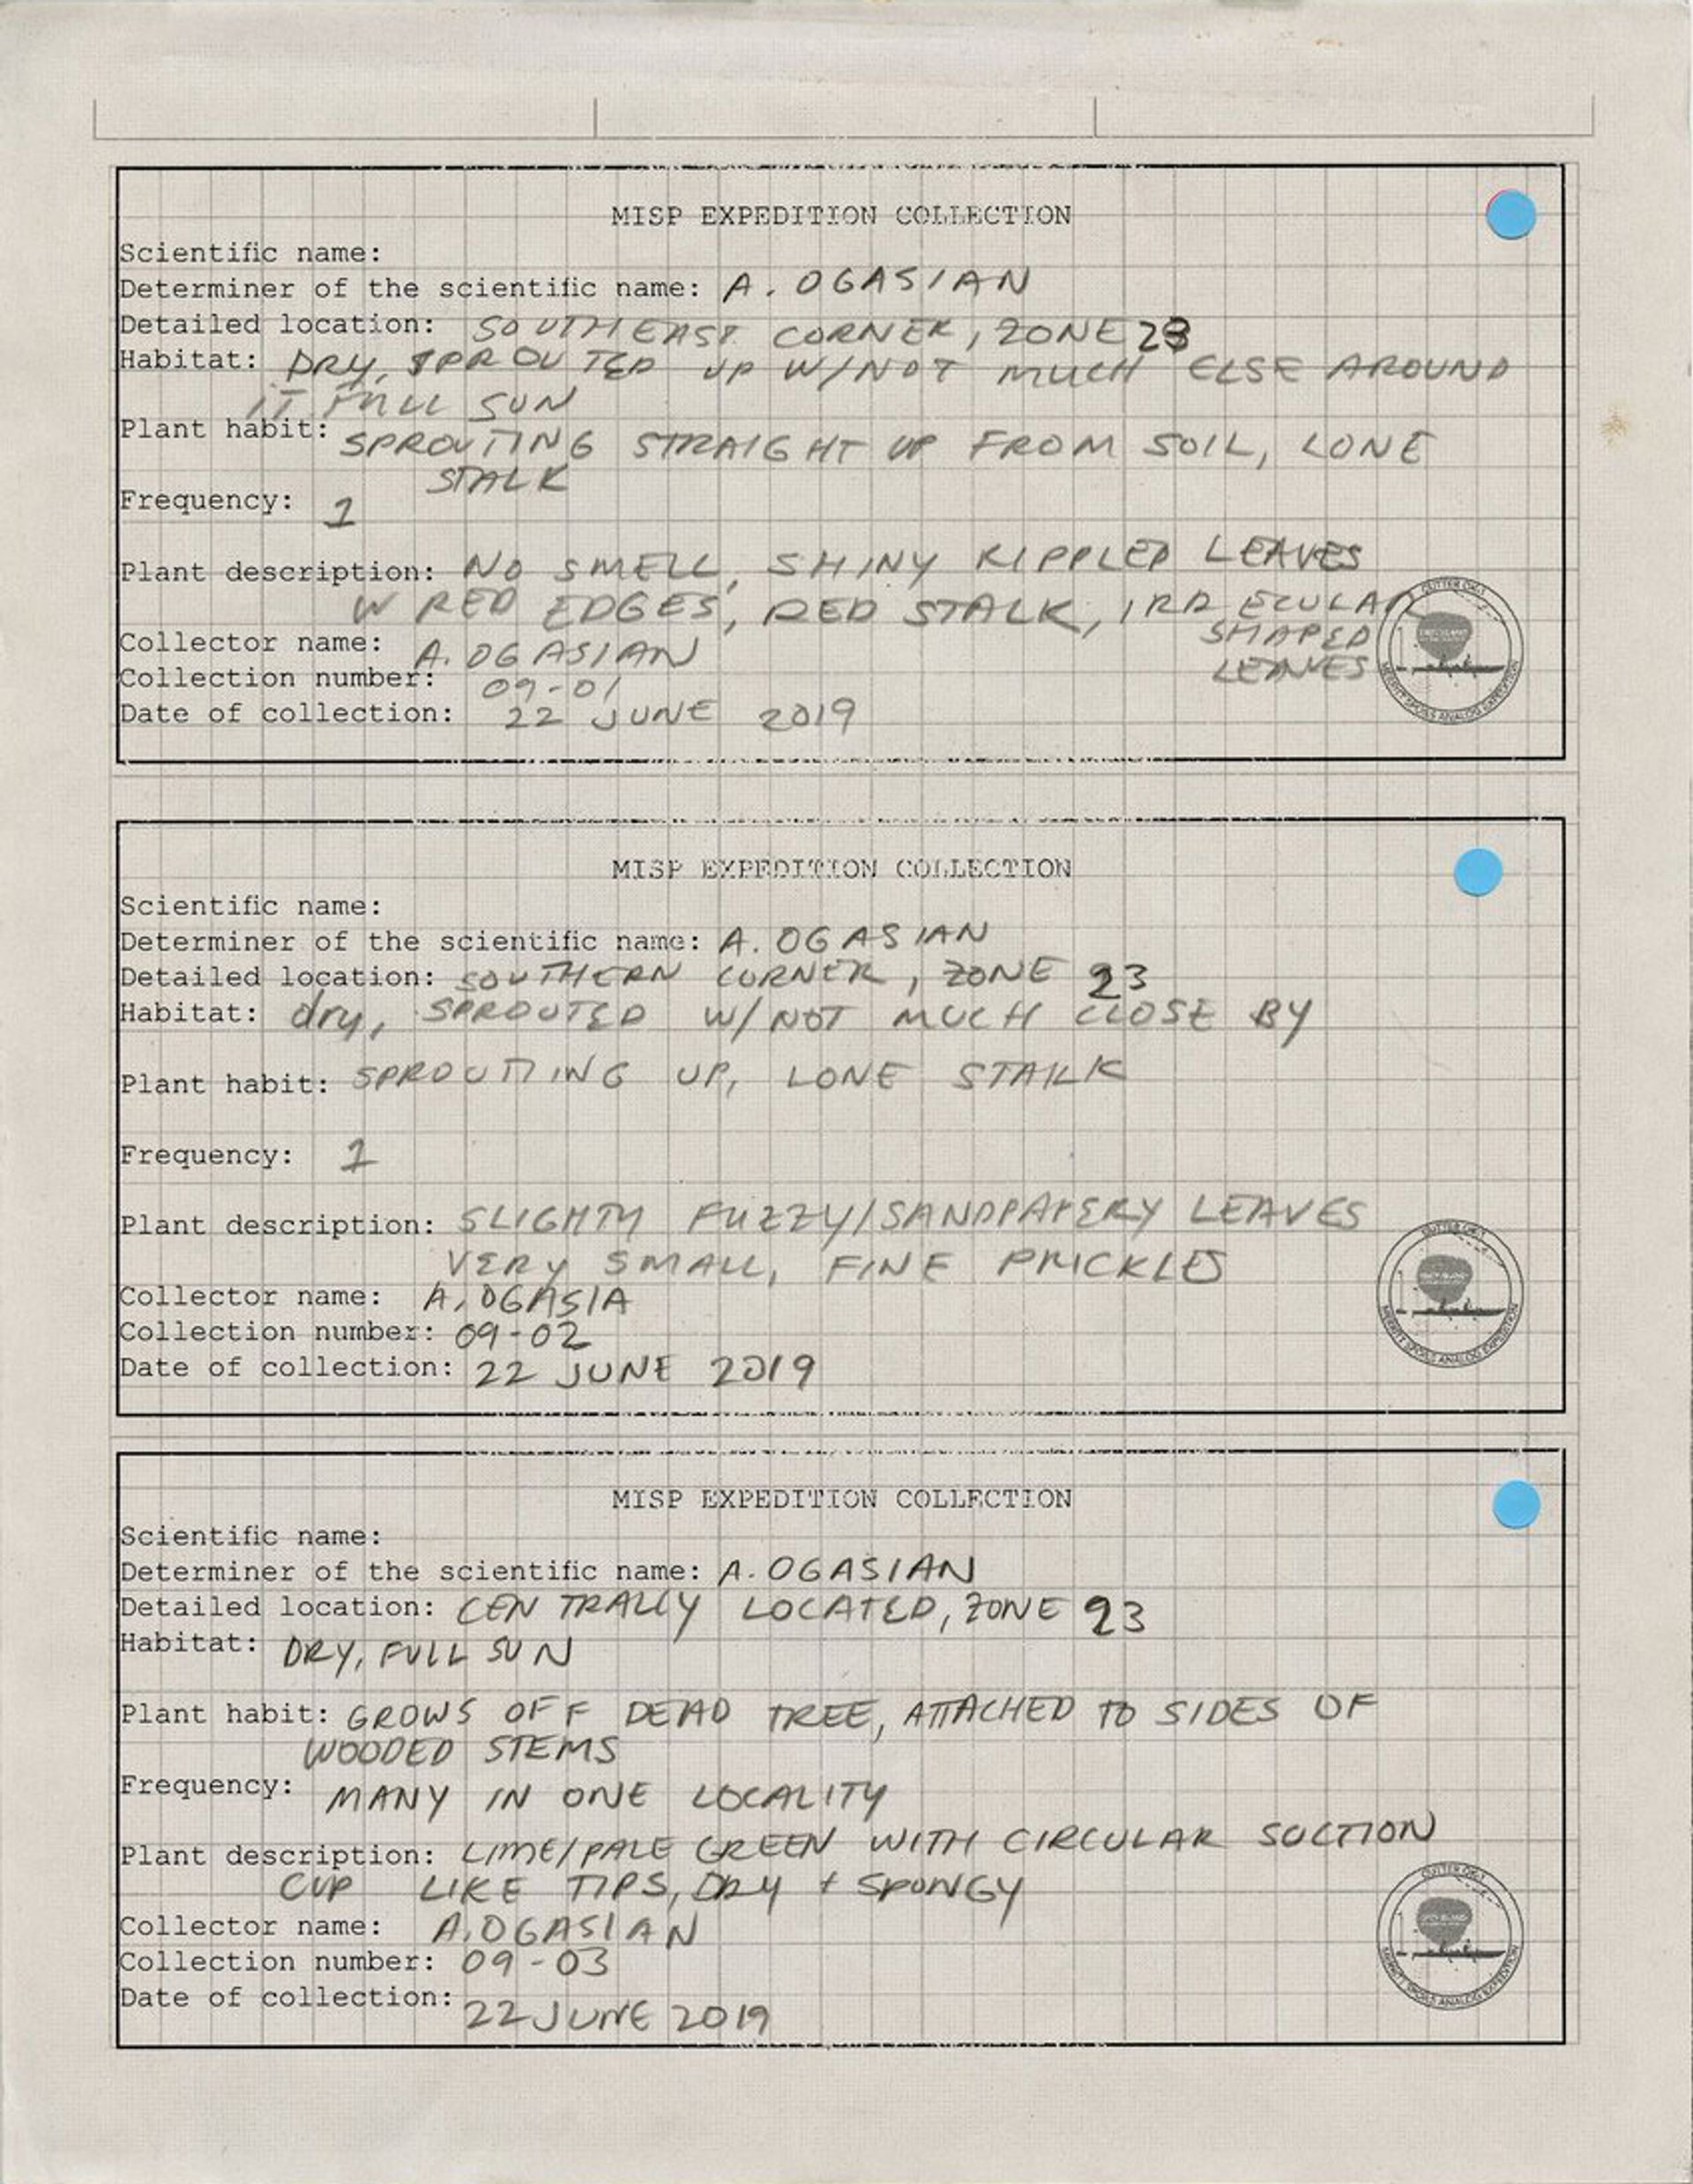 MISP EXPEDITION COLLECTION
Scientific name:
Determiner of the scientific name: A. OGASIAN
Detailed location: SOUTHEAST CORNER, ZONE 23
Habitat: DRY, SPROUTED UP W/NOT MUCH ELSE AROUND
IT FULL SUN
Plant habit: SPROUTING STRAIGHT UP FROM SOIL, LONE
STALK
Frequency: 1
Plant description: NO SMELL, SHINY RIPPLED LEAVES
W RED EDGES, RED STALK, IRREGULAR
SHAPED
LEAVES
Collector name: A. OGASIAN
Collection number: 09-01
Date of collection: 22 JUNE 2019
MERRITT SPOILS ANALOG EXPEDITION
MISP EXPEDITION COLLECTION
Scientific name:
Determiner of the scientific name: A. OGASIAN
Detailed location: SOUTHERN CORNER, ZONE 23
Habitat: dry, SPROUTED W/NOT MUCH CLOSE BY
Plant habit: SPROUTING UP, LONE STALK
Frequency: 1
Plant description: SLIGHTY FUZZY/SANDPAPERY LEAVES
VERY SMALL, FINE PRICKLES
Collector name: A. OGASIA
Collection number: 09-02
Date of collection: 22 JUNE 2019
MERRITT SPOILS ANALOG EXPEDITION
MISP EXPEDITION COLLECTION
Scientific name:
Determiner of the scientific name: A. OGASIAN
Detailed location: CENTRALLY LOCATED, ZONE 23
Habitat: DRY, FULL SUN
Plant habit: GROWS OFF DEAD TREE, ATTACHED TO SIDES OF
WOODED STEMS
Frequency: MANY IN ONE LOCALITY
Plant description: LIME/PALE GREEN WITH CIRCULAR SUCTION
CUP LIKE TIPS, DRY + SPONGY
Collector name: A. OGASIAN
Collection number: 09-03
Date of collection: 22 JUNE 2019
MERRITT SPOILS ANALOG EXPEDITION